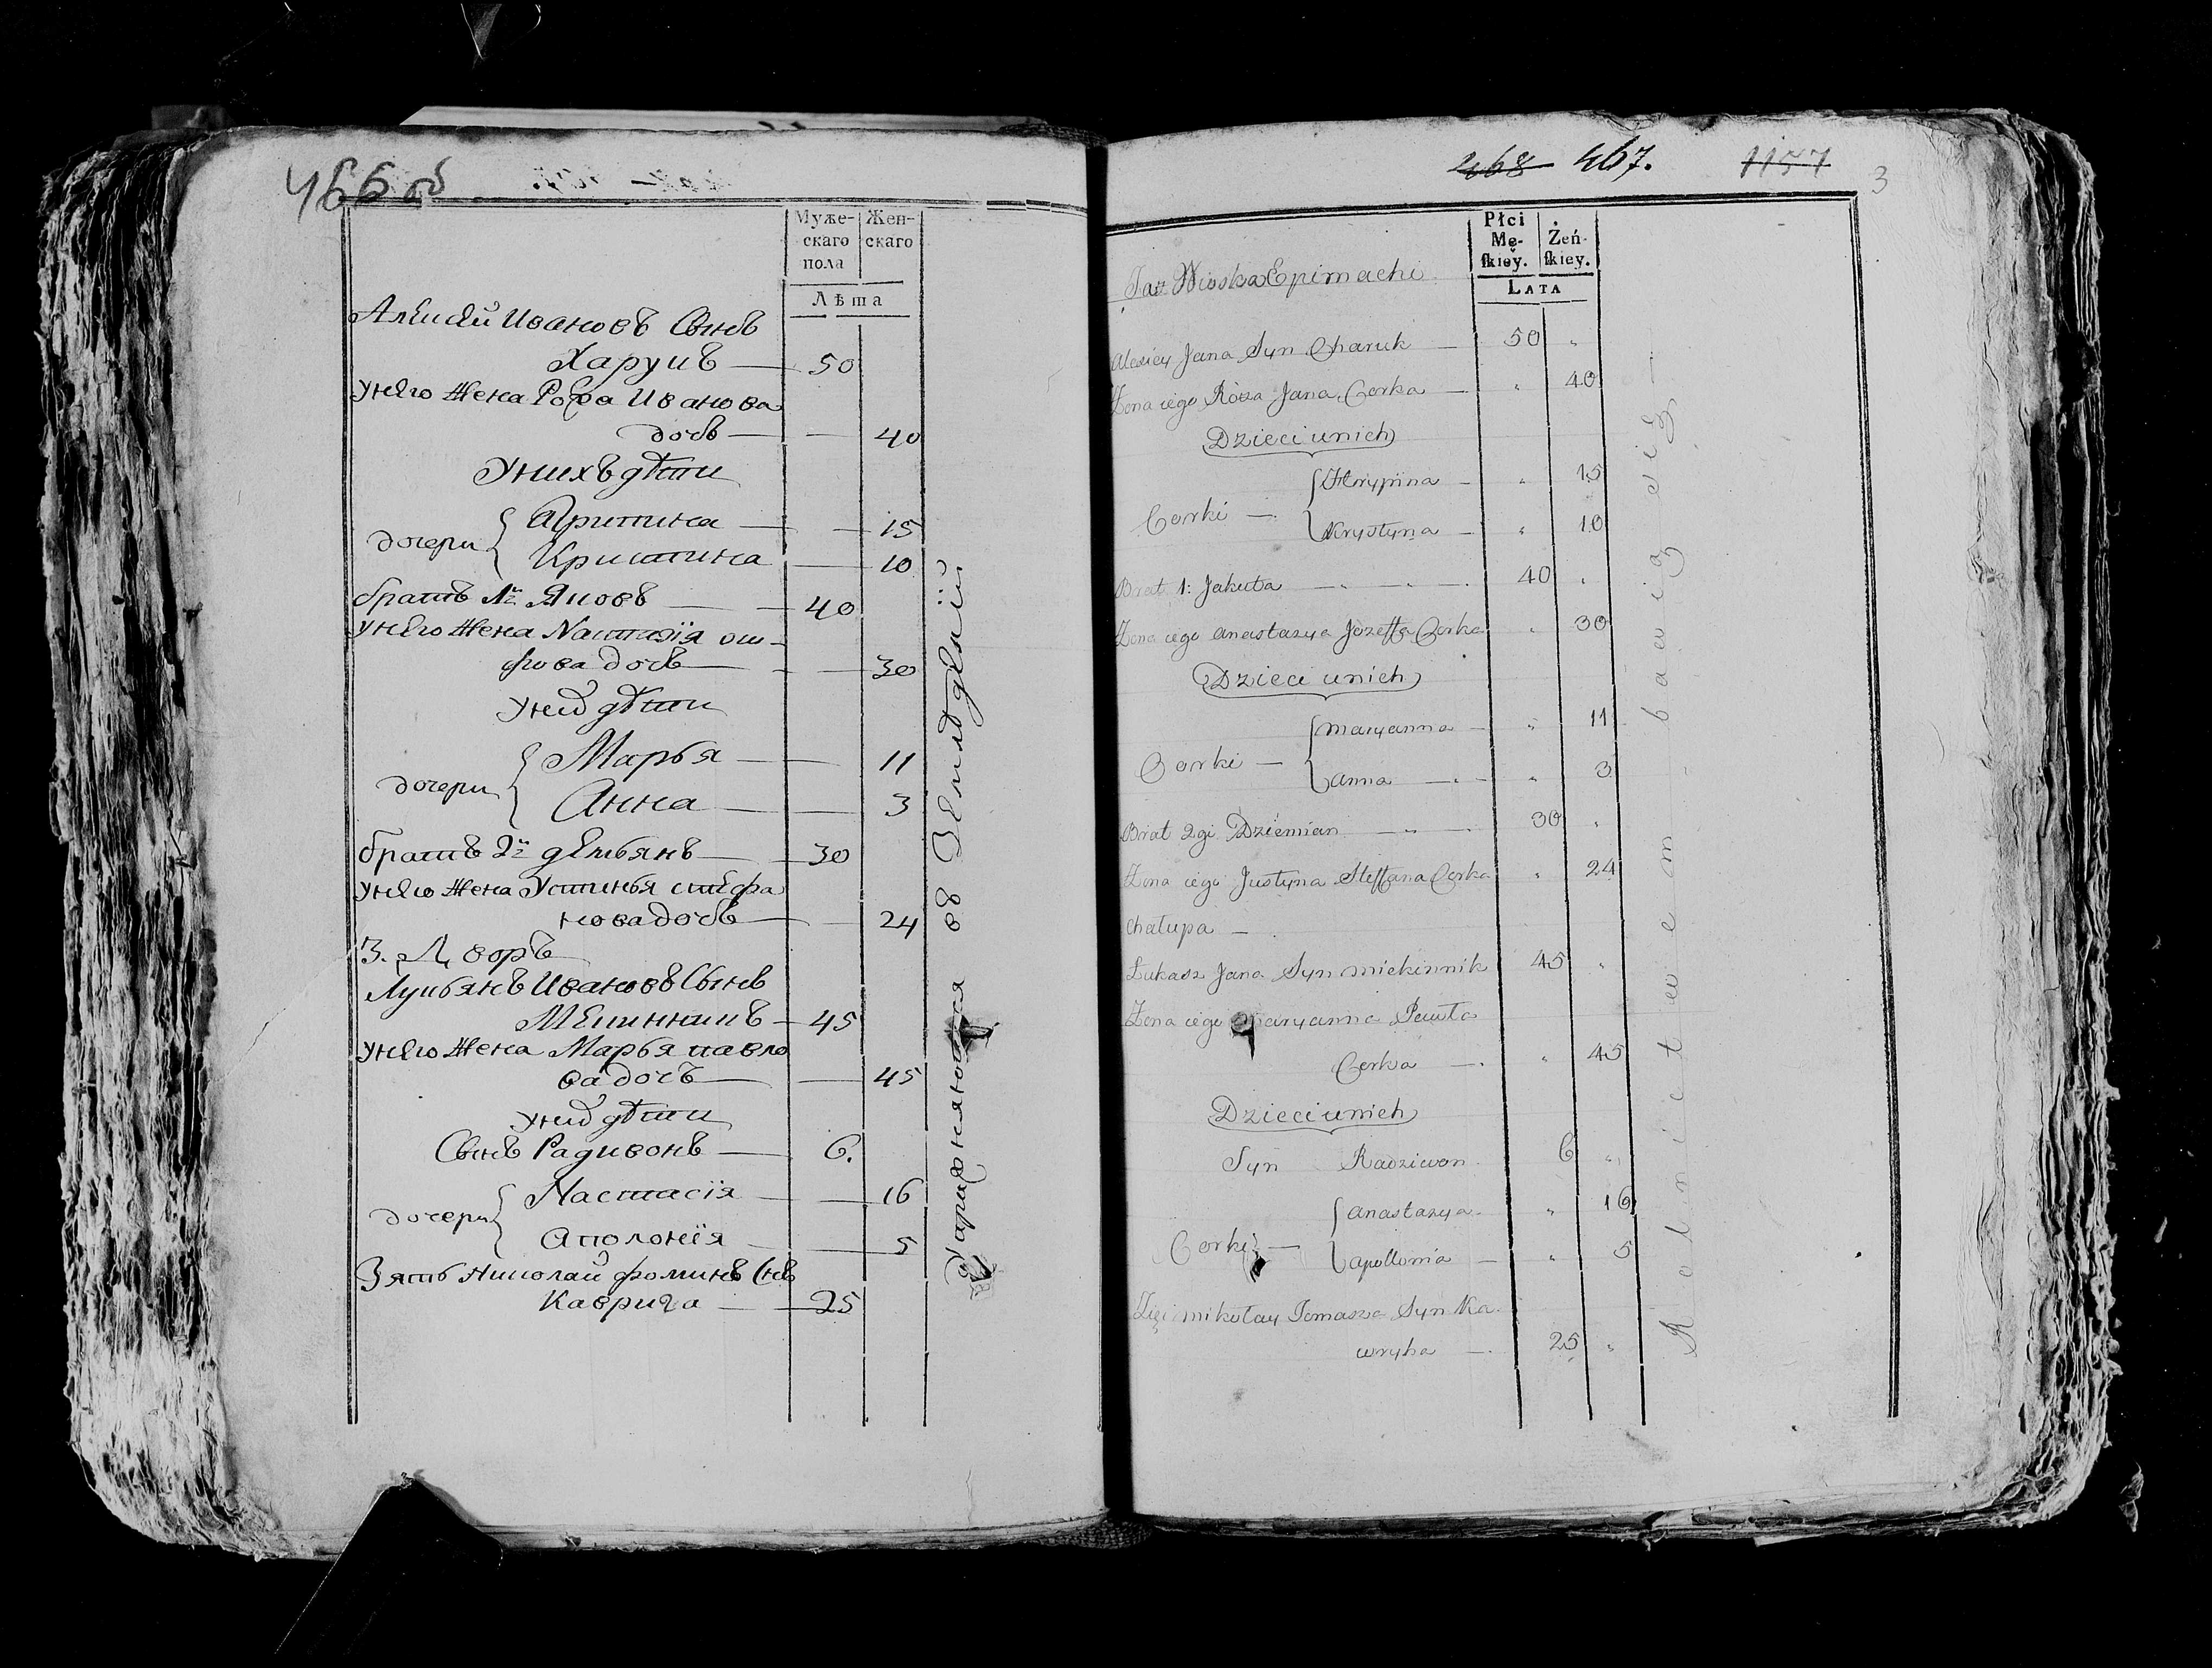 466 об
Муже-
скаго
пола
Жен-
скаго
Лѣта
Алексѣй Ивановъ Сынъ
Харукъ — 50
У него Жена Роза Иванова
дочь — 40
У нихъ дѣти
дочери
Агрипина — 15
Кристина — 10
братъ 1й Яковъ — 40
У него Жена Настазiя
дочь — 30
У них дѣти
дочери
Марья — 11
Анна — 3
братъ 2й демьянъ — 30
У него Жена Устинья стефа
нова дочь — 24
3. Дворъ
Лукьянъ Ивановъ Сынъ
Мекинникъ — 45
У него Жена Марья павло
ва дочь — 45
У них дѣти
Сынъ Радивонъ — 6.
дочери
Настасiя — 16
Аполонiя — 5
Зять Николай фоминъ Снъ
Каврига — 25
упражняются въ Земледелiи
468 467. 1157 3
Płci
Mę-
skiey.
Żeń-
skiey.
LATA
Taż Wioska Epimachi
Alexiey Jana Syn Charuk — 50 "
Żona iego Róza Jana Corka — " 40
Dzieci u nich
Corki —
Hrypina — " 15
Krystyna — " 10
Brat 1: Jakuba — 40 "
Żona iego Anastazya Jozeffa Corka " 30
Dzieci u nich
Corki —
Maryanna — " 11
Anna — " 3
Brat 2gi Dziemian — 30 "
Żona iego Justyna Steffana Corka " 24
Chałupa —
Łukasz Jana Syn Miekinnik 45 "
Żona iego Maryanna Pawła
Corka — " 45
Dzieci u nich
Syn Radziwon 6 "
Corki —
Anastazya — " 16
Apollonia — " 5
Zięć Mikołay Tomasza Syn Ka-
wryha — 25 "
Rolnictwem — bawią się —